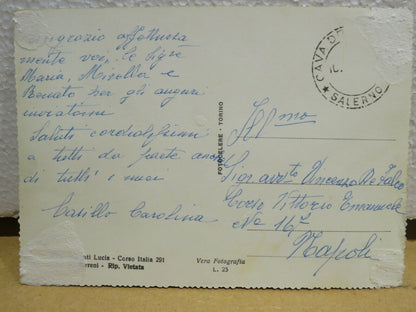 Ringrazio affettuosa
mente voi, le Sig.re
Maria, Mirella e
Renato per gli auguri
inviatomi
Saluti cordialissimi
a tutti da parte anche
di tutti i miei
Casillo Carolina
FOTOCELERE - TORINO
CAVA DE
SALERNO
Ill.mo
Sig. avv.to Vincenzo De Falco
Corso Vittorio Emanuele
No 167
Napoli
ti Lucia - Corso Italia 201
rreni - Rip. Vietata
Vera Fotografia
L. 25